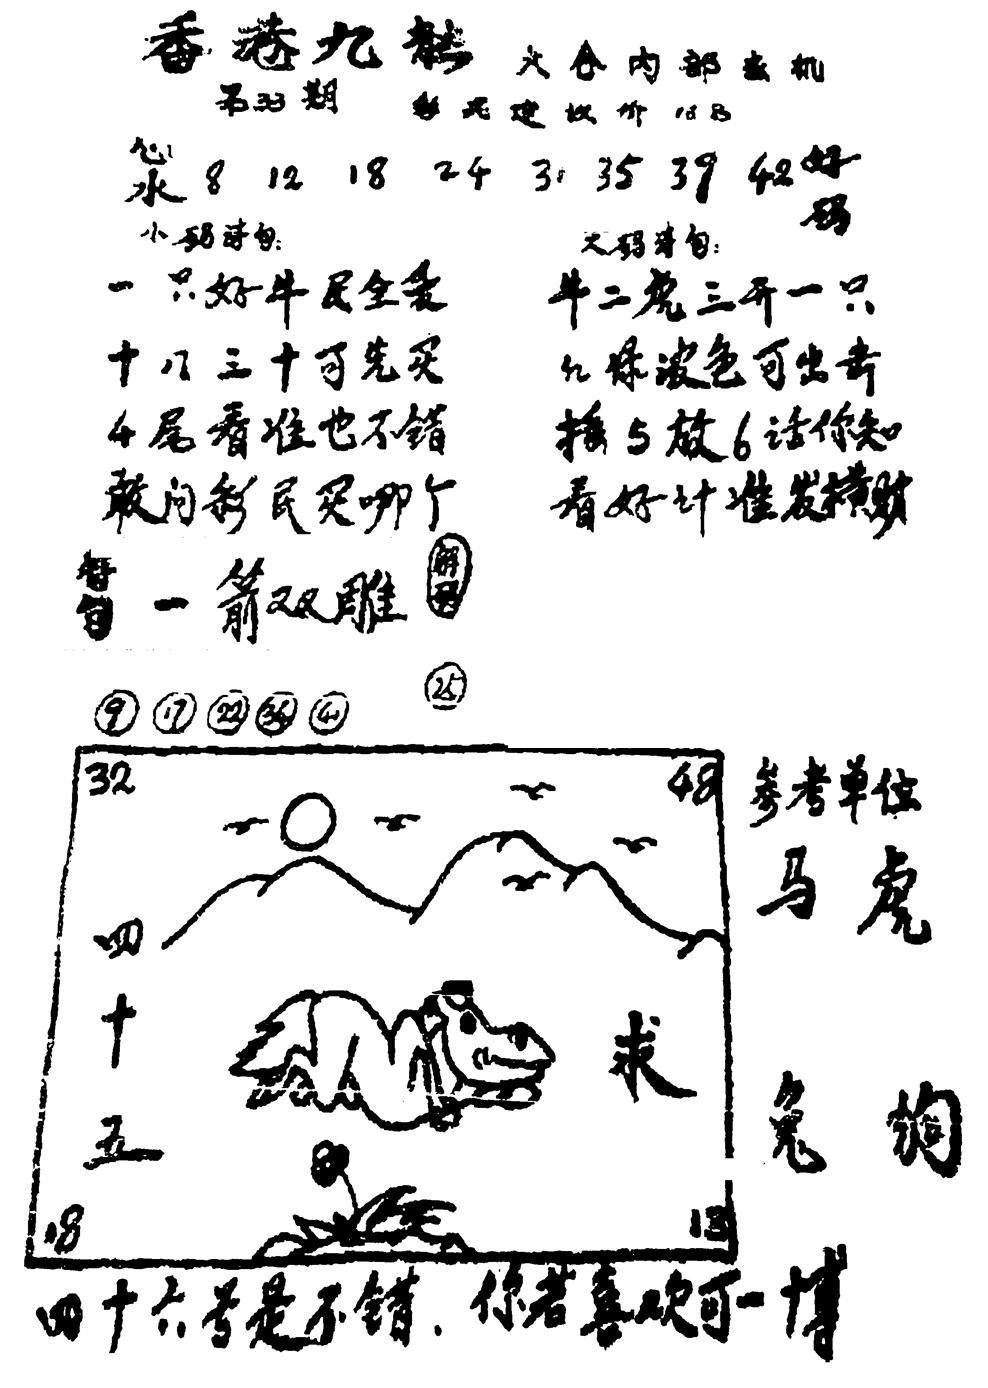 香港九龙 六合内部玄机
第33期
心水 8 12 18 24 31 35 39 42 好码
小码诗句:
一只好牛民全爱
十八三十可先买
4尾看准也不错
敢问彩民买哪个
大码诗句:
牛二虎三开一只
九绿波色可出击
接5放6话你知
看好计准发横财
一箭双雕
解码
25
9 17 22 36
32 48
四十五
求
18 13
参考单位
马 虎
兔 狗
四十六号是不错.你若喜欢可一博